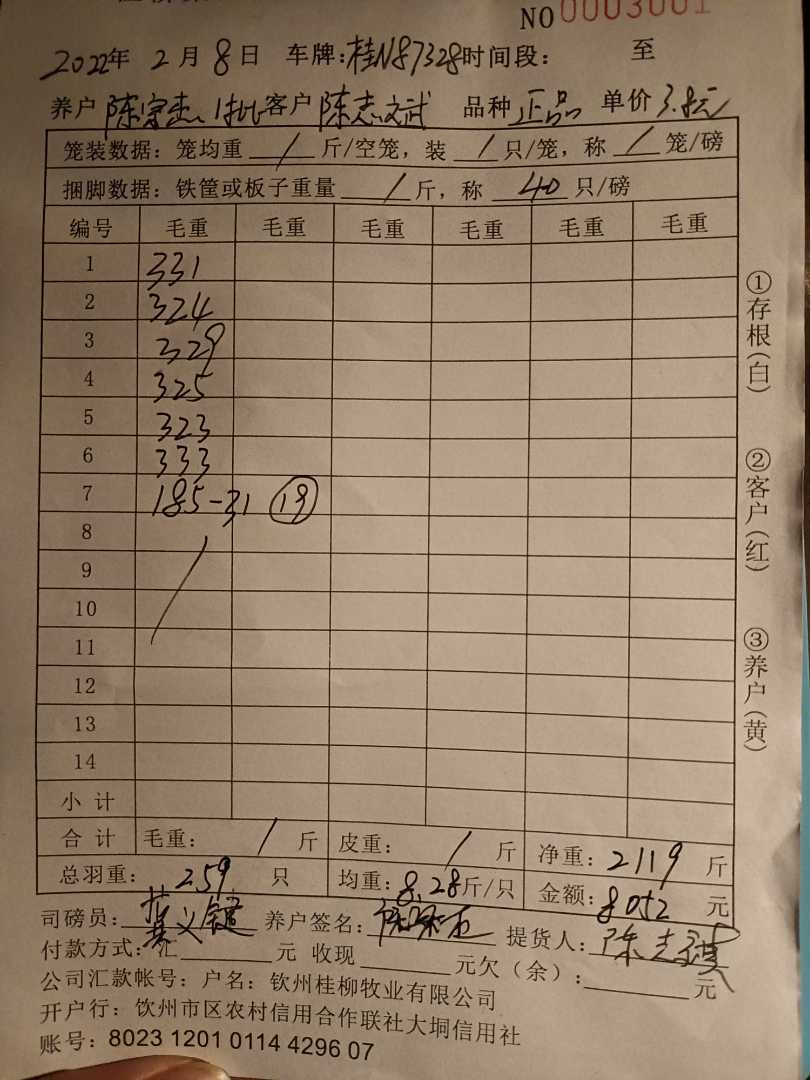 NO 0003001
2022年 2月 8日 车牌:桂N87328 时间段: 至
养户 陈宗杰、1批 客户 陈志斌 品种 正品 单价 3.8元
笼装数据:笼均重 / 斤/空笼,装 / 只/笼,称 / 笼/磅
捆脚数据:铁筐或板子重量 / 斤,称 40 只/磅
编号 毛重 毛重 毛重 毛重 毛重 毛重
1 331
2 324
3 329
4 325
5 323
6 333
7 185-31 19
8
9
10
11
12
13
14
小 计
合 计 毛重: / 斤 皮重: / 斤 净重: 2119 斤
总羽重: 259 只 均重: 8.28 斤/只 金额: 8052 元
司磅员: 养户签名: 提货人: 陈志
付款方式:汇 元 收现 元欠(余): 元
公司汇款帐号:户名:钦州桂柳牧业有限公司
开户行:钦州市区农村信用合作联社大垌信用社
账号:8023 1201 0114 4296 07
①存根(白)
②客户(红)
③养户(黄)